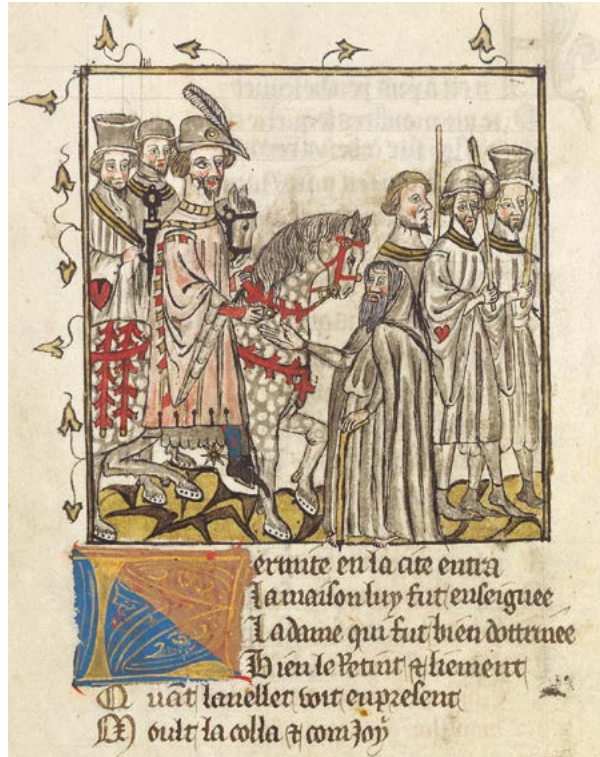 ermite en la cite entra
La maison luy fut enseignee
La dame qui fut bien dottrinee
Bien le Retint & liement
Quāt lanellet voit en present
Moult la colla & conJoÿ